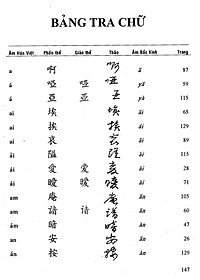 BẢNG TRA CHỮ
Âm Hán Việt Phồn thể Giản thể Thảo Âm Bắc Kinh Trang
a 啊 啊 ā 87
á 啞 哑 哑 yǎ 59
á 亞 亚 亚 yà 115
ai 埃 埃 āi 65
ai 挨 挨 āi 129
ai 哀 哀 āi 89
ải 隘 隘 ài 115
ái 愛 爱 爱 ài 28
ái 曖 暧 暧 ài 71
am 庵 庵 ān 60
am 諳 谙 ān 47
ám 暗 暗 àn 110
an 安 安 ān 26
án 按 按 àn 129
147